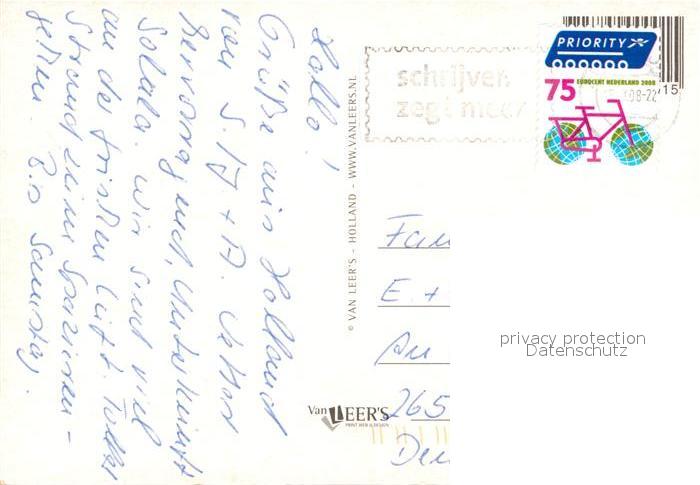 Hallo!
Grüße aus Holland
von S. + A. Wetter
hervorragend, Unterkunft
. Wir sind viel
an der frischen Luft. Toller
Strand zum Spazieren-
gehen. Bis Samstag.
© VAN LEER'S - HOLLAND - WWW.VANLEERS.NL
schrijven
zegt meer
PRIORITY
75
EUROCENT NEDERLAND 2008
08-22
15
Fam
E. +
An
265
Deu
privacy protection
Datenschutz
Van LEER'S
PRINT WEB & DESIGN